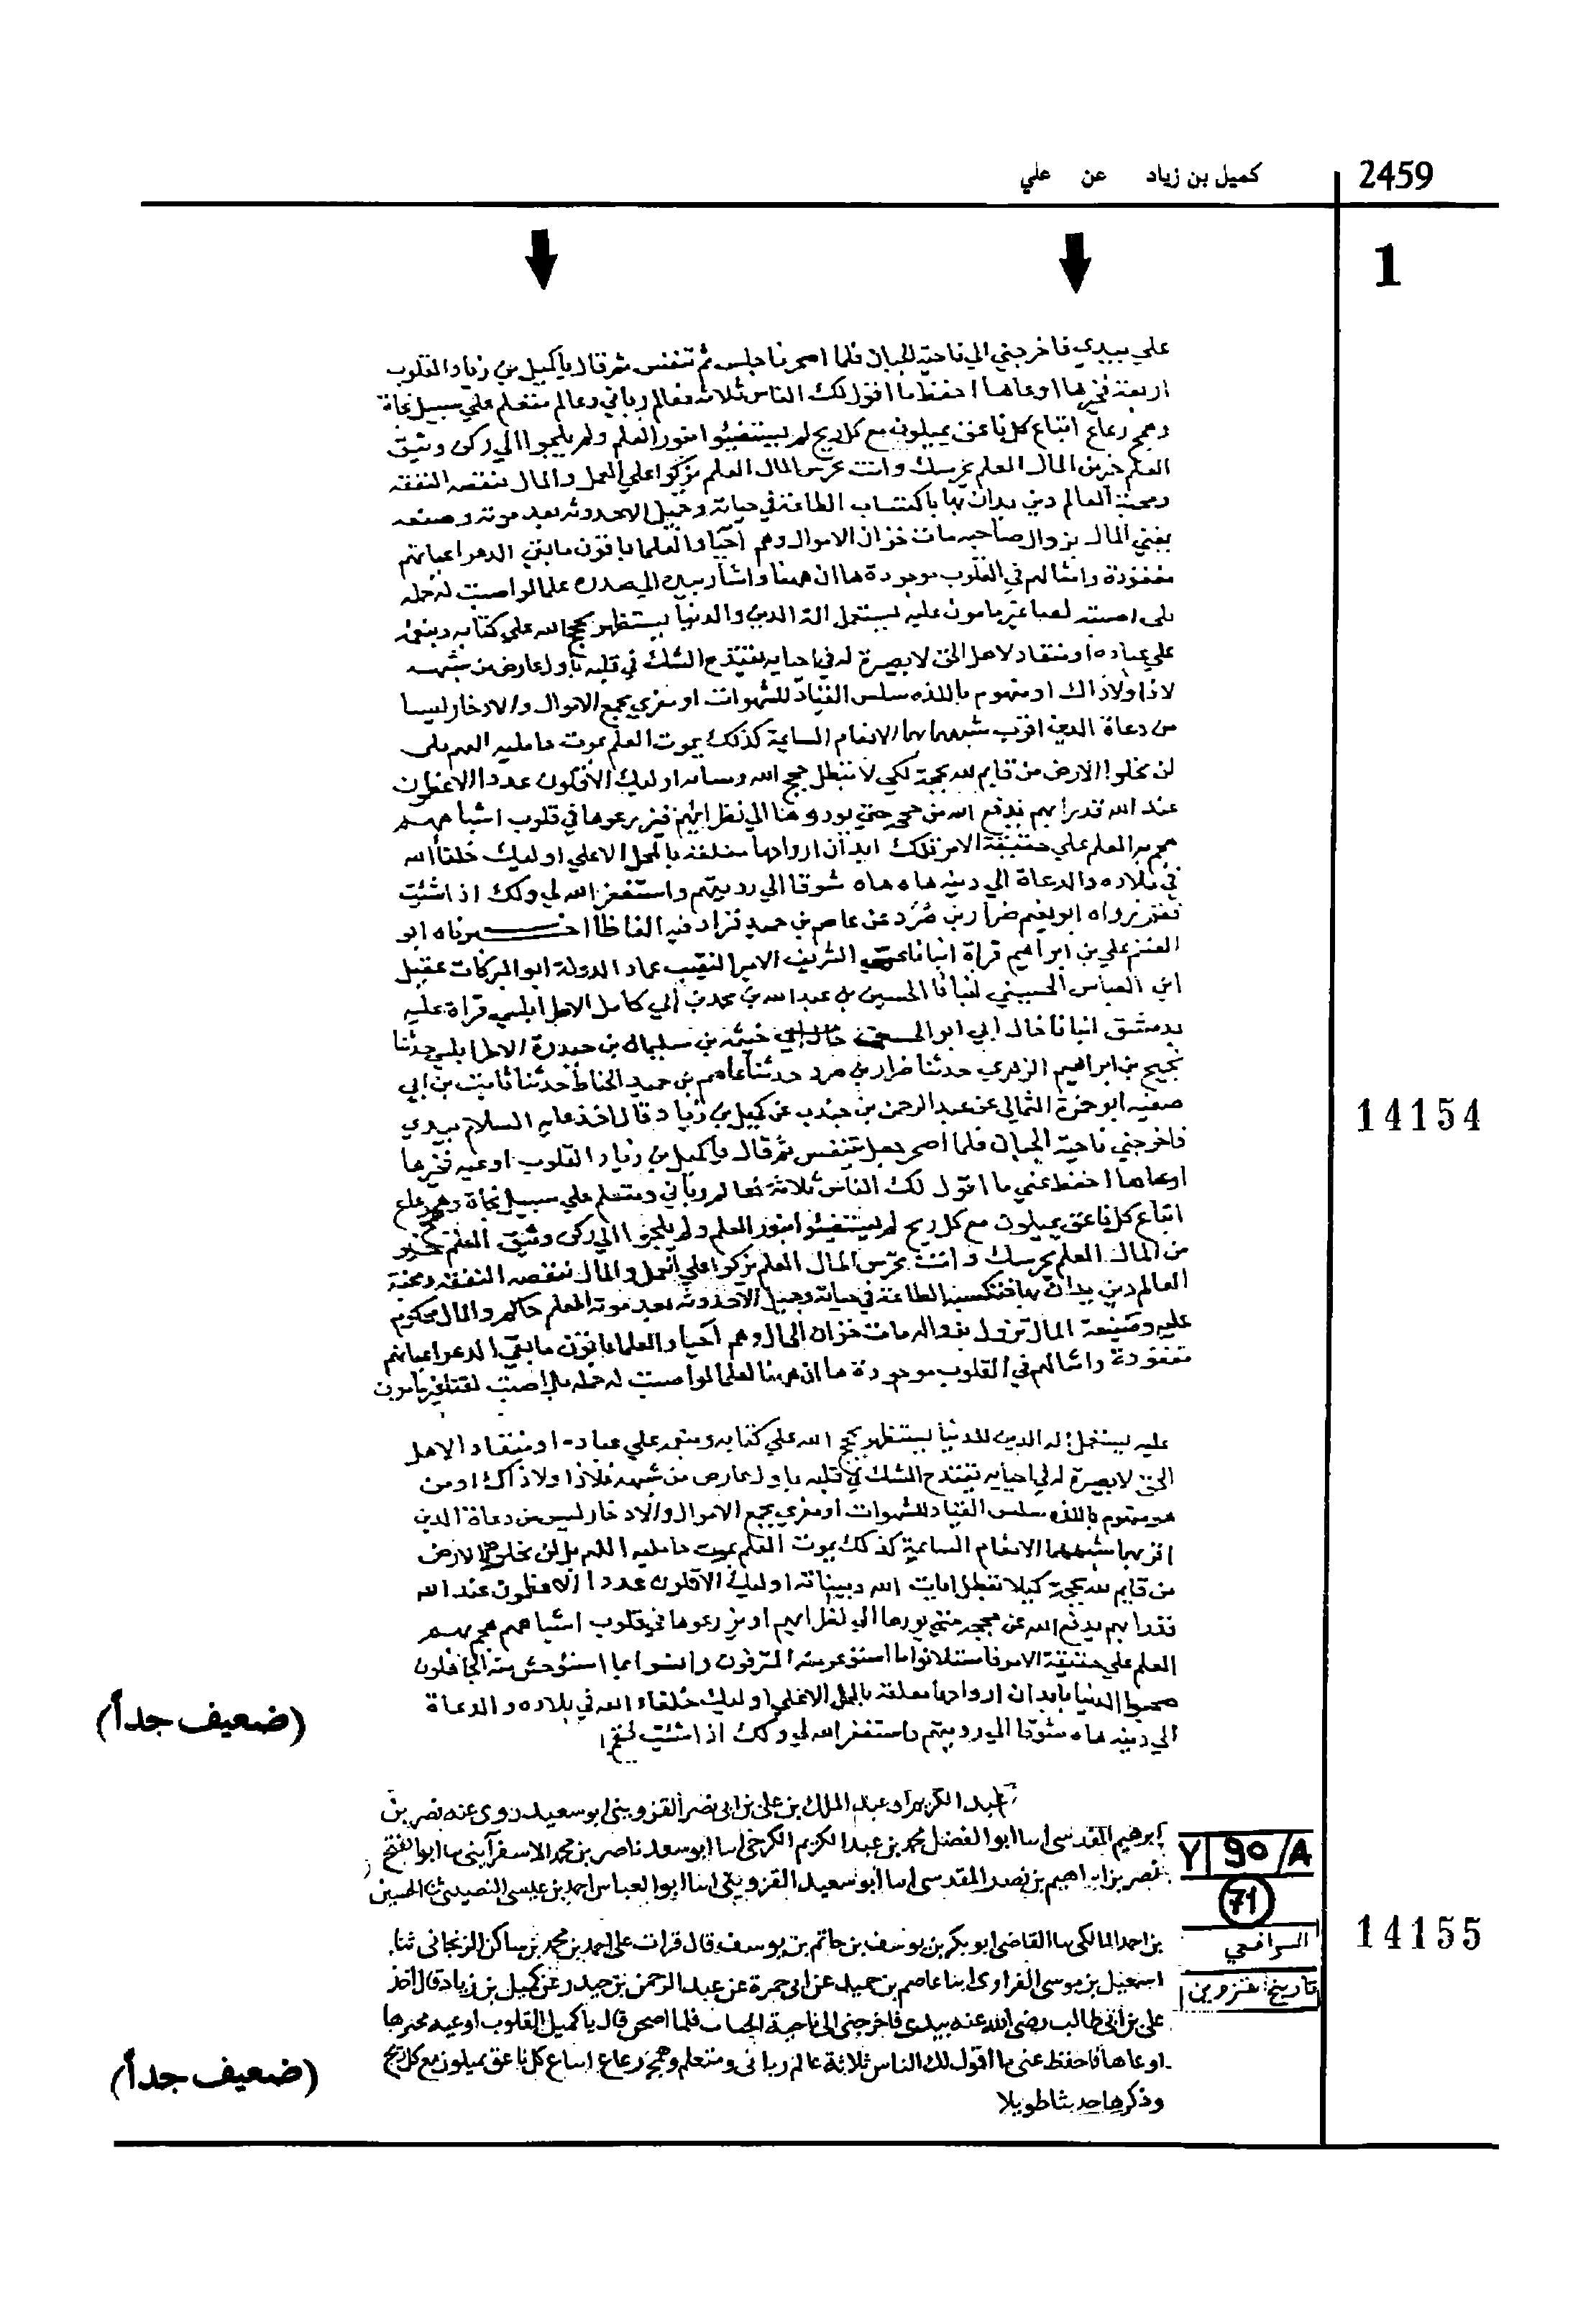 2459
كميل بن زياد عن علي
1
علي بيدي فاخرجني الي ناحية الجبان فلما اصحرنا جلس ثم تنفس ثم قال ياكميل بن زياد القلوب
اوعية فخيرها اوعاها احفظ ما اقول لك الناس ثلاثة فعالم رباني وعالم متعلم علي سبيل نجاة
وهمج رعاع اتباع كل ناعق يميلون مع كل ريح لم يستضيئوا بنور العلم ولم يلجوا الي ركن وثيق
العلم خير من المال العلم يحرسك وانت تحرس المال العلم يزكوا علي العمل والمال تنقصه النفقة
ومحبة العالم دين يدان بها باكتساب الطاعة في حياته وجميل الاحدوثه بعد موته وصنيعه
يفني المال بزوال صاحبه مات خزان الاموال وهم احيا والعلما باقون ما بقي الدهر اعيانهم
مفقودة وامثالهم في القلوب موجودة ها ان ههنا واشار بيده الي صدره علما لو اصبت له حمله
بلي اصبته لقنا غير مامون عليه يستعمل الة الدين والدنيا يستظهر بحجج الله علي كتابه
علي عباده او منقاد لاهل الحق لا بصيرة له في احيايه يقتدح الشك في قلبه باول عارض من شبهه
لا ذا ولا ذاك او منهوم باللذه سلس القياد للشهوات او مغري بجمع الاموال والادخار ليسا
من دعاة الدين اقرب شبههما بهما الانعام السايمة كذلك يموت العلم بموت حامليه اللهم بلي
لن تخلوا الارض من قايم لله بحجة لكي لا تبطل حجج الله وبيناته اوليك الاقلون عددا الاعظمون
عند الله قدرا بهم يدفع الله من حججه حتي يودوها الي نظرايهم فيزرعوها في قلوب اشباههم
هجم بهم العلم علي حقيقة الامر تلك ابدان ارواحها معلقة بالمحل الاعلي اوليك خلفا الله
في بلاده والدعاة الي دينه هاه هاه شوقا الي رويتهم واستغفر الله لي ولك اذا شئت
فقم رواه ابو نعيم ضرار بن صُرَد عن عاصم بن حميد فزاد فيه الفاظا اخبرناه ابو
القسم علي بن ابراهيم قراة انبانا الشريف الامير النقيب عماد الدولة ابو البركات عقيل
ابن العباس الحسيني انبانا الحسين بن عبدالله بن محمد بن ابي كامل الاطرابلسي قراة عليه
بدمشق انبانا خال ابي ابو الحسن خيثمه بن سليمان بن حيدرة الاطرابلسي حدثنا
نجيح بن ابراهيم الزهري حدثنا ضرار بن صرد حدثنا عاصم بن حميد الحناط حدثنا ثابت بن ابي
صفيه ابو حمزة الثمالي عن عبد الرحمن بن جندب عن كميل بن زياد قال اخذ عليه السلام بيدي
فاخرجني ناحية الجبان فلما اصحر جعل يتنفس ثم قال ياكميل بن زياد القلوب اوعيه فخيرها
اوعاها احفظ عني ما اقول لك الناس ثلاثة فعالم رباني ومتعلم علي سبيل نجاة وهمج رعاع
اتباع كل ناعق يميلون مع كل ريح لم يستضيئوا بنور العلم ولم يلجوا الي ركن وثيق العلم خير
من المال العلم يحرسك وانت تحرس المال العلم يزكوا علي العمل والمال تنقصه النفقة ومحبة
العالم دين يدان بها الطاعة في حياته وجميل الاحدوثه بعد موته العلم حاكم والمال محكوم
عليه وصنيعة المال تزول بزواله مات خزان المال وهم احيا والعلما باقون ما بقي الدهر اعيانهم
مفقودة وامثالهم في القلوب موجودة ها ان ههنا لعلما لو اصبت له حمله بلي اصبت لقنا غير مامون
عليه يستعمل اله الدين للدنيا يستظهر بحجج الله علي كتابه وبنعمه علي عباده او منقاد الاهل
الحق لا بصيرة له في احيايه يقتدح الشك في قلبه باول عارض من شبهه فلا ذا ولا ذاك او من
هو منهوم باللذه سلس القياد للشهوات او مغري بجمع الاموال والادخار ليس من دعاة الدين
اقربهما شبههما الانعام السايمة كذلك يموت العلم بموت حامليه اللهم بل لن تخلو الارض
من قايم لله بحجة كيلا تبطل ايات الله وبيناته اوليك الاقلون عددا الاعظمون عند الله
قدرا بهم يدفع الله عن حججه حتي يودوها الي نظرايهم او يزرعوها في قلوب اشباههم هجم بهم
العلم علي حقيقة الامر فاستلانوا ما استوعر منه المترفون وانسوا بما استوحش منه الجاهلون
صحبوا الدنيا بابدان ارواحها معلقة بالمحل الاعلي اوليك خلفاء الله في بلاده والدعاة
الي دينه هاه شوقا الي رويتهم واستغفر الله لي ولك اذا شئت فقم
14154
(ضعيف جداً)
عبد الكريم او عبد الملك بن علي بن ابي نصر القزويني ابو سعيد روى عنه نصر بن
ابرهيم المقدسي انبا ابو الفضل محمد بن عبد الكريم الكرخي انبا ابو سعد ناصر بن محمد الاسفرآيني ابو الفتح
نصر بن ابراهيم بن نصر المقدسي انبا ابو سعيد القزويني انبا ابو العباس احمد بن عيسى النصيبي ثنا الحسين
بن احمد المالكي القاضي ابو بكر بن يوسف بن حاتم بن يوسف قال قرات على احمد بن محمد بن ساكن الزنجاني ثنا
اسمعيل بن موسى الفزاوى ابنا عاصم بن حميد عن ابي حمزة عن عبد الرحمن بن جيدر عن كميل بن زياد قال اخذ
علي بن ابي طالب رضي الله عنه بيدي فاخرجني الى ناحية الجبان فلما اصحر قال يا كميل القلوب اوعيه فخيرها
اوعاها فاحفظ عني ما اقول لك الناس ثلاثة عالم رباني ومتعلم وهمج رعاع اتباع كل ناعق يميلون مع كل ريح
وذكرها حديثا طويلا
Y 90/A
71
الرافعي
تاريخ قزوين
14155
(ضعيف جداً)